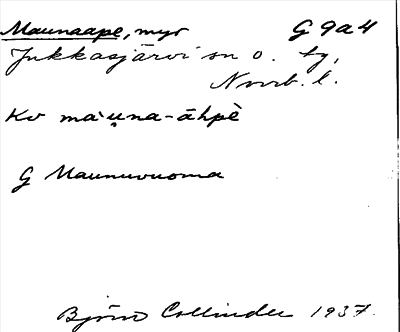 Maunaape, myr G 9a4
Jukkasjärvi sn o. tg,
Norrb. l.
Kv ma`u̬na-āhpè
G Maunuvuoma
Björn Collinder 1937.